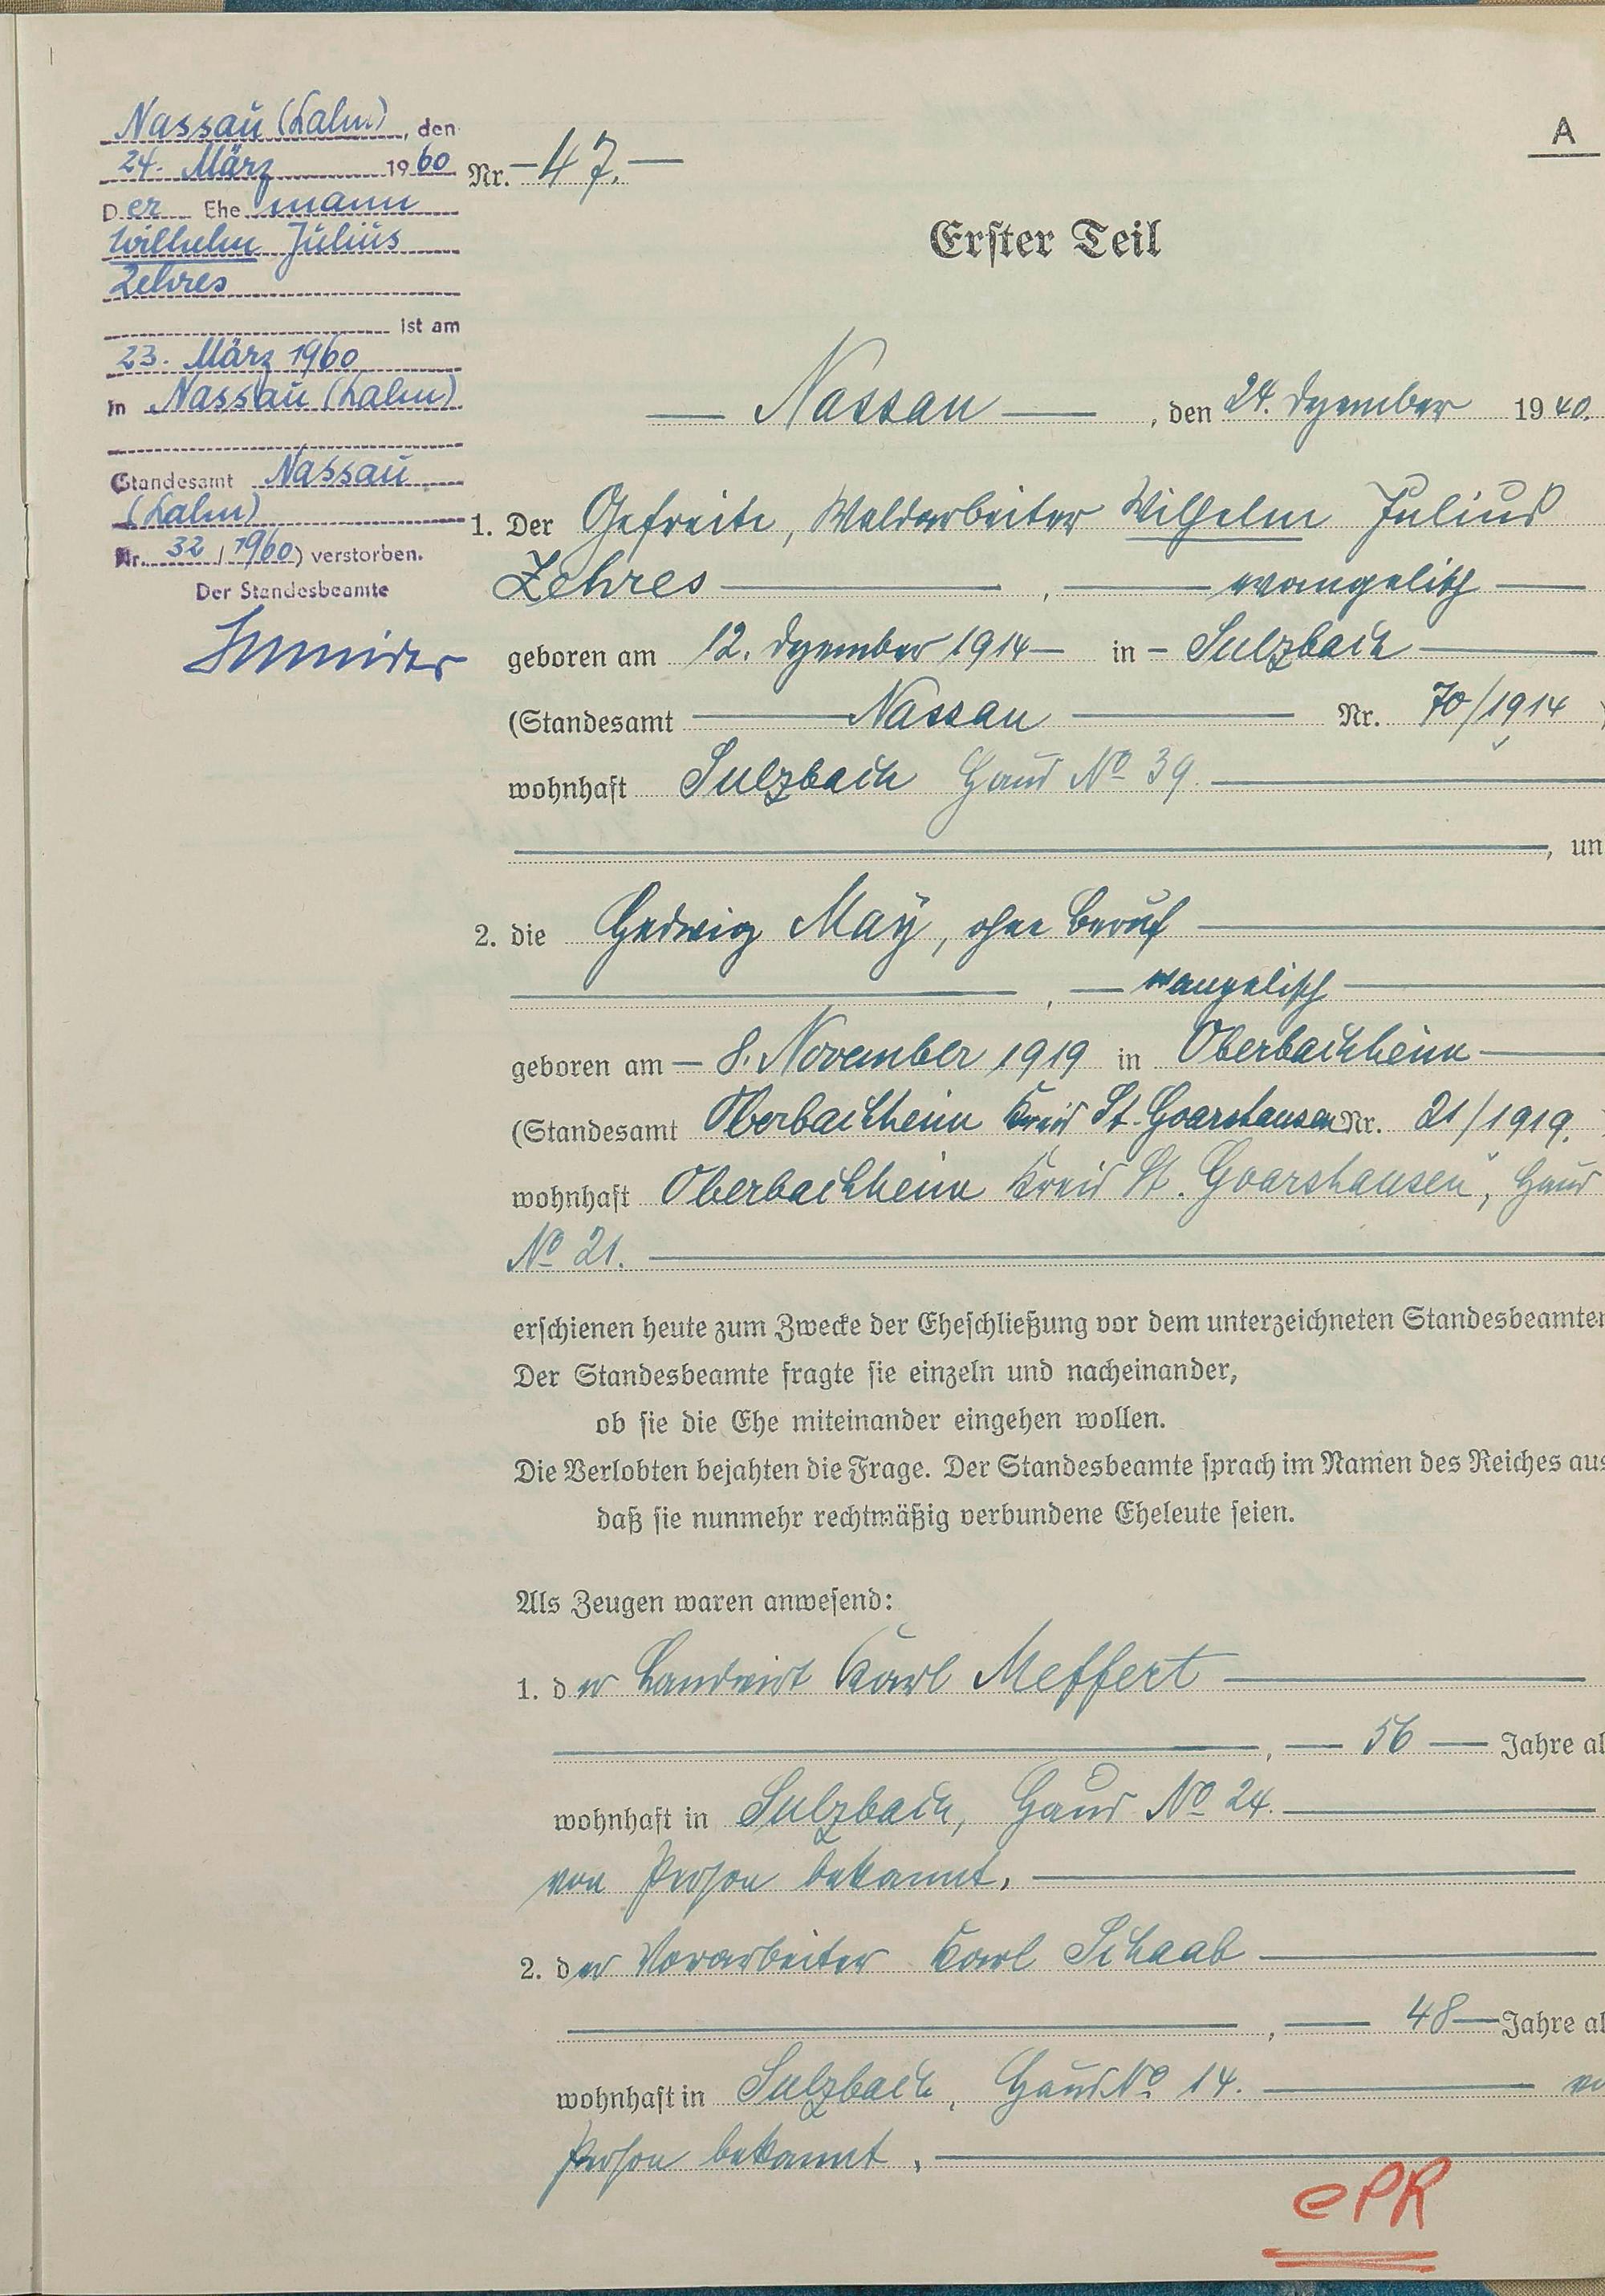 Nassau (Lahn), den
24. März 1960
Der Ehemann
Wilhelm Julius
Zehres
ist am
23. März 1960
in Nassau (Lahn)
Standesamt Nassau
(Lahn)
Nr. 32/1960) verstorben.
Der Standesbeamte
A
Nr. – 47. —
Erster Teil
— Nassau —, den 24. Dezember 1940.
1. Der Gefreite, Waldarbeiter Wilhelm Julius
Zehres —, — evangelisch —
geboren am 12. Dezember 1914 — in – Sulzbach —
(Standesamt — Nassau — Nr. 70/1914
wohnhaft Sulzbach Haus No 39. —
—, un
2. die Hedwig May, ohne Beruf —
—, — evangelisch —
geboren am — 8. November 1919 in Oberbachheim —
(Standesamt Oberbachheim Kreis St. Goarshausen Nr. 21/1919.
wohnhaft Oberbachheim Kreis St. Goarshausen, Haus
No 21. —
erschienen heute zum Zwecke der Eheschließung vor dem unterzeichneten Standesbeamten
Der Standesbeamte fragte sie einzeln und nacheinander,
ob sie die Ehe miteinander eingehen wollen.
Die Verlobten bejahten die Frage. Der Standesbeamte sprach im Namen des Reiches aus
daß sie nunmehr rechtmäßig verbundene Eheleute seien.
Als Zeugen waren anwesend:
1. der Landwirt Karl Meffert —
—, — 56 — Jahre al
wohnhaft in Sulzbach, Haus No 24. —
von Person bekannt. —
2. der Vorarbeiter Karl Schaab —
—, — 48 — Jahre al
wohnhaft in Sulzbach, Haus No 14. — vo
Person bekannt. —
ePR